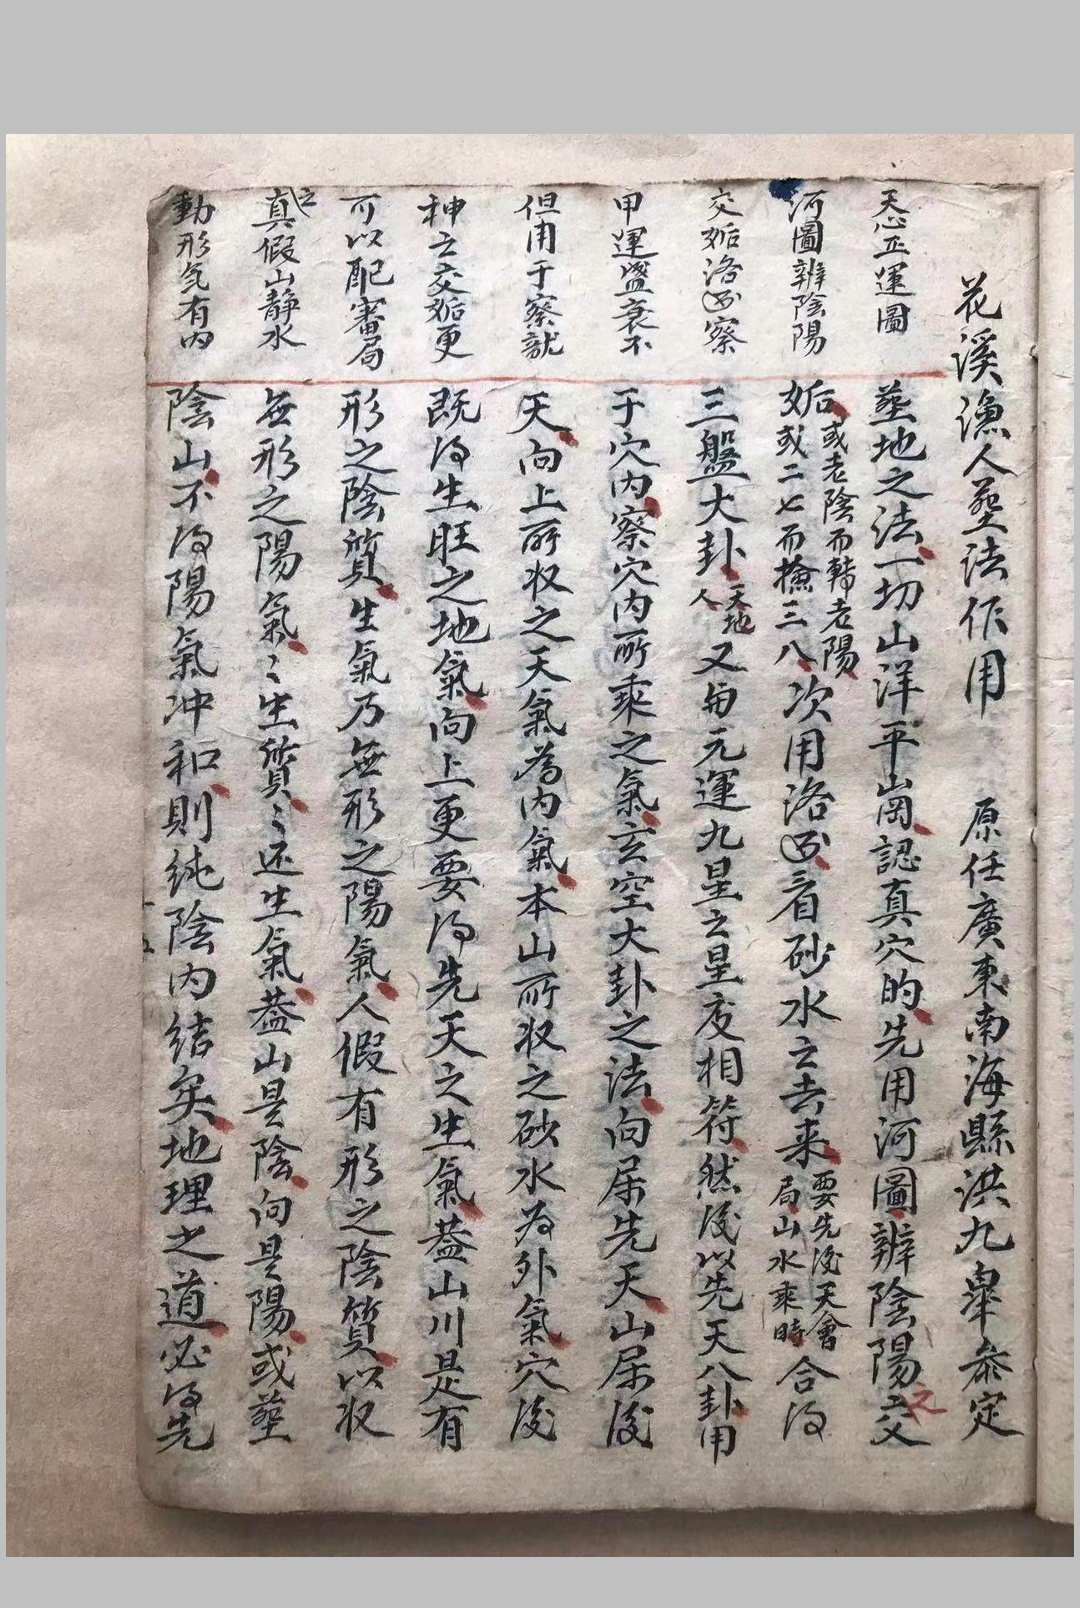 花溪漁人塟法作用　原任廣東南海縣洪九臯叅定
天心正運圖
河圖辨陰陽
交姤洛図察
甲運盛衰不
但用于察龍
神之交姤更
可以配審局
之真假山靜水
動形氣有內
塟地之法一切山洋平岡認真穴的先用河圖辨陰陽之交
姤或老陰而轉老陽或二七而撿三八次用洛図看砂水之去来要先後天會局山水乘時合得
三盤大卦天地人又與元運九星之星度相符然後以先天八卦用
于穴內察穴內所乘之氣玄空大卦之法向屬先天山屬後
天向上所収之天氣為內氣本山所収之砂水為外氣穴後
既得生旺之地氣向上更要得先天之生氣葢山川是有
形之陰質生氣乃無形之陽氣人假有形之陰質以収
無形之陽氣氵生質氵还生氣葢山是陰向是陽或塟
陰山不得陽氣冲和則純陰內結矣地理之道必得先